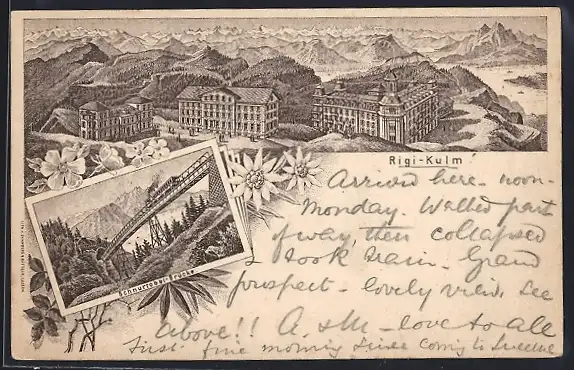 Rigi-Kulm
Schnurtobelbrücke
Arrived here - noon -
Monday. Walked part
of way, then collapsed
& took train - Grand
prospect - lovely view. See
above!! A. & M - love to all
First fine morning since coming to Lucerne